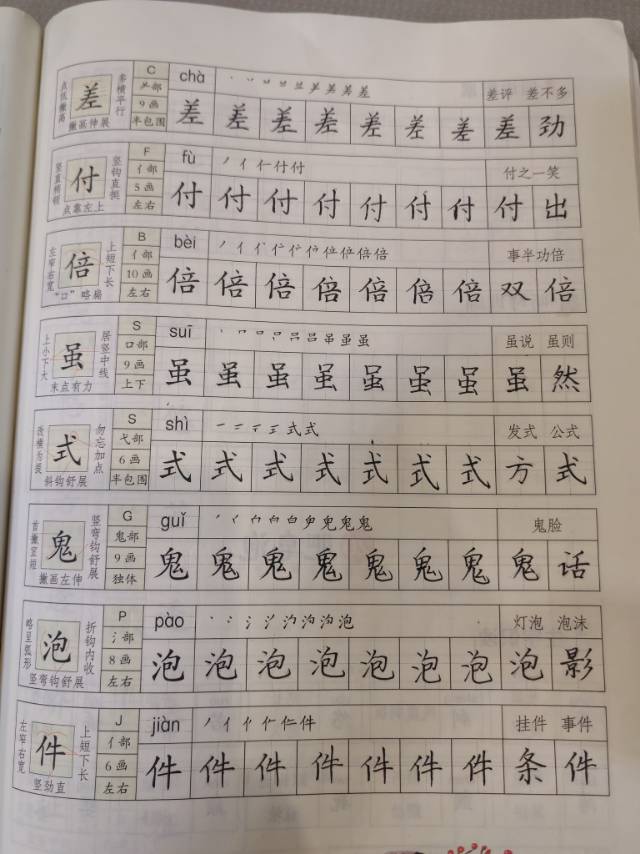 点低撇高 差 多横平行 撇画伸展 C 𦍌部 9画 半包围 chà 差评 差不多
差 差 差 差 差 差 差 差 劲
竖直稍倾 付 竖钩直挺 点靠左上 F 亻部 5画 左右 fù 付之一笑
付 付 付 付 付 付 付 付 出
左窄右宽 倍 上短下长 “口”略扁 B 亻部 10画 左右 bèi 事半功倍
倍 倍 倍 倍 倍 倍 倍 双 倍
上小下大 虽 居竖中线 末点有力 S 口部 9画 上下 suī 虽说 虽则
虽 虽 虽 虽 虽 虽 虽 虽 然
改横为提 式 勿忘加点 斜钩舒展 S 弋部 6画 半包围 shì 发式 公式
式 式 式 式 式 式 式 方 式
首撇宜短 鬼 竖弯钩舒展 撇画左伸 G 鬼部 9画 独体 guǐ 鬼脸
鬼 鬼 鬼 鬼 鬼 鬼 鬼 鬼 话
略呈弧形 泡 折钩内收 竖弯钩舒展 P 氵部 8画 左右 pào 灯泡 泡沫
泡 泡 泡 泡 泡 泡 泡 泡 影
左窄右宽 件 上短下长 竖劲直 J 亻部 6画 左右 jiàn 挂件 事件
件 件 件 件 件 件 件 条 件